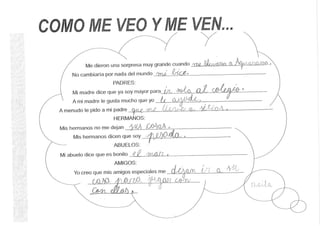 COMO ME VEO Y ME VEN...
Me dieron una sorpresa muy grande cuando me llevaron a
No cambiaría por nada del mundo mi bici.
PADRES:
Mi madre dice que ya soy mayor para ir sola al colegio.
A mi madre le gusta mucho que yo le ayude.
A menudo le pido a mi padre que me lleve a
HERMANOS:
Mis hermanos no me dejan sus cosas.
Mis hermanos dicen que soy pesada.
ABUELOS:
Mi abuelo dice que es bonito el mar.
AMIGOS:
Yo creo que mis amigos especiales me dejan ir a su
casa para jugar con
con ellos.